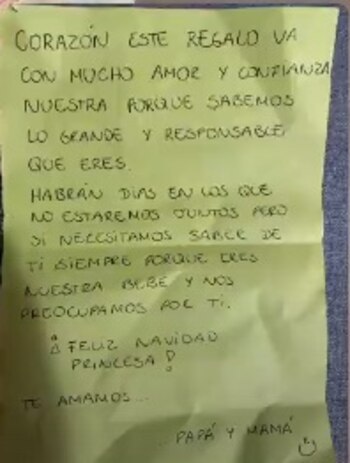 CORAZÓN ESTE REGALO VA
CON MUCHO AMOR Y CONFIANZA
NUESTRA PORQUE SABEMOS
LO GRANDE Y RESPONSABLE
QUE ERES.
HABRÁN DIAS EN LOS QUE
NO ESTAREMOS JUNTOS PERO
SI NECESITAMOS SABER DE
TI SIEMPRE PORQUE ERES
NUESTRA BEBÉ Y NOS
PREOCUPAMOS POR TI.
¡FELIZ NAVIDAD
PRINCESA!
TE AMAMOS...
...PAPÁ Y MAMÁ